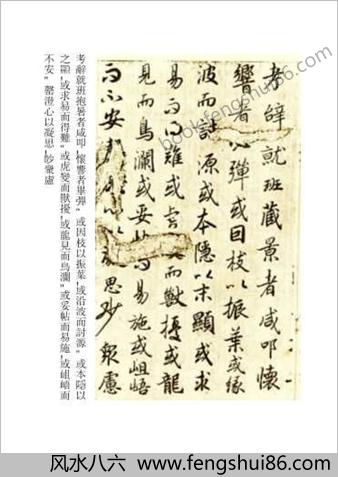 考辭就班藏景者咸叩懷
響者必彈或因枝以振葉或緣
波而討源或本隱以末顯或求
易而得難或虎變而獸擾或龍
見而鳥瀾或妥帖而易施或岨峿
而不安以思眇衆慮
考辭就班抱暑者咸叩,懷響者畢彈"或因枝以振葉,或沿波而討源"或本隱以
之顯,或求易而得難"或虎變而獸擾,或龍見而鳥瀾"或妥帖而易施,或岨峿而
不安"罄澄心以凝思,眇衆慮
bookfengshui86.com
bookfengshui86.com
风水八六 www.fengshui86.com